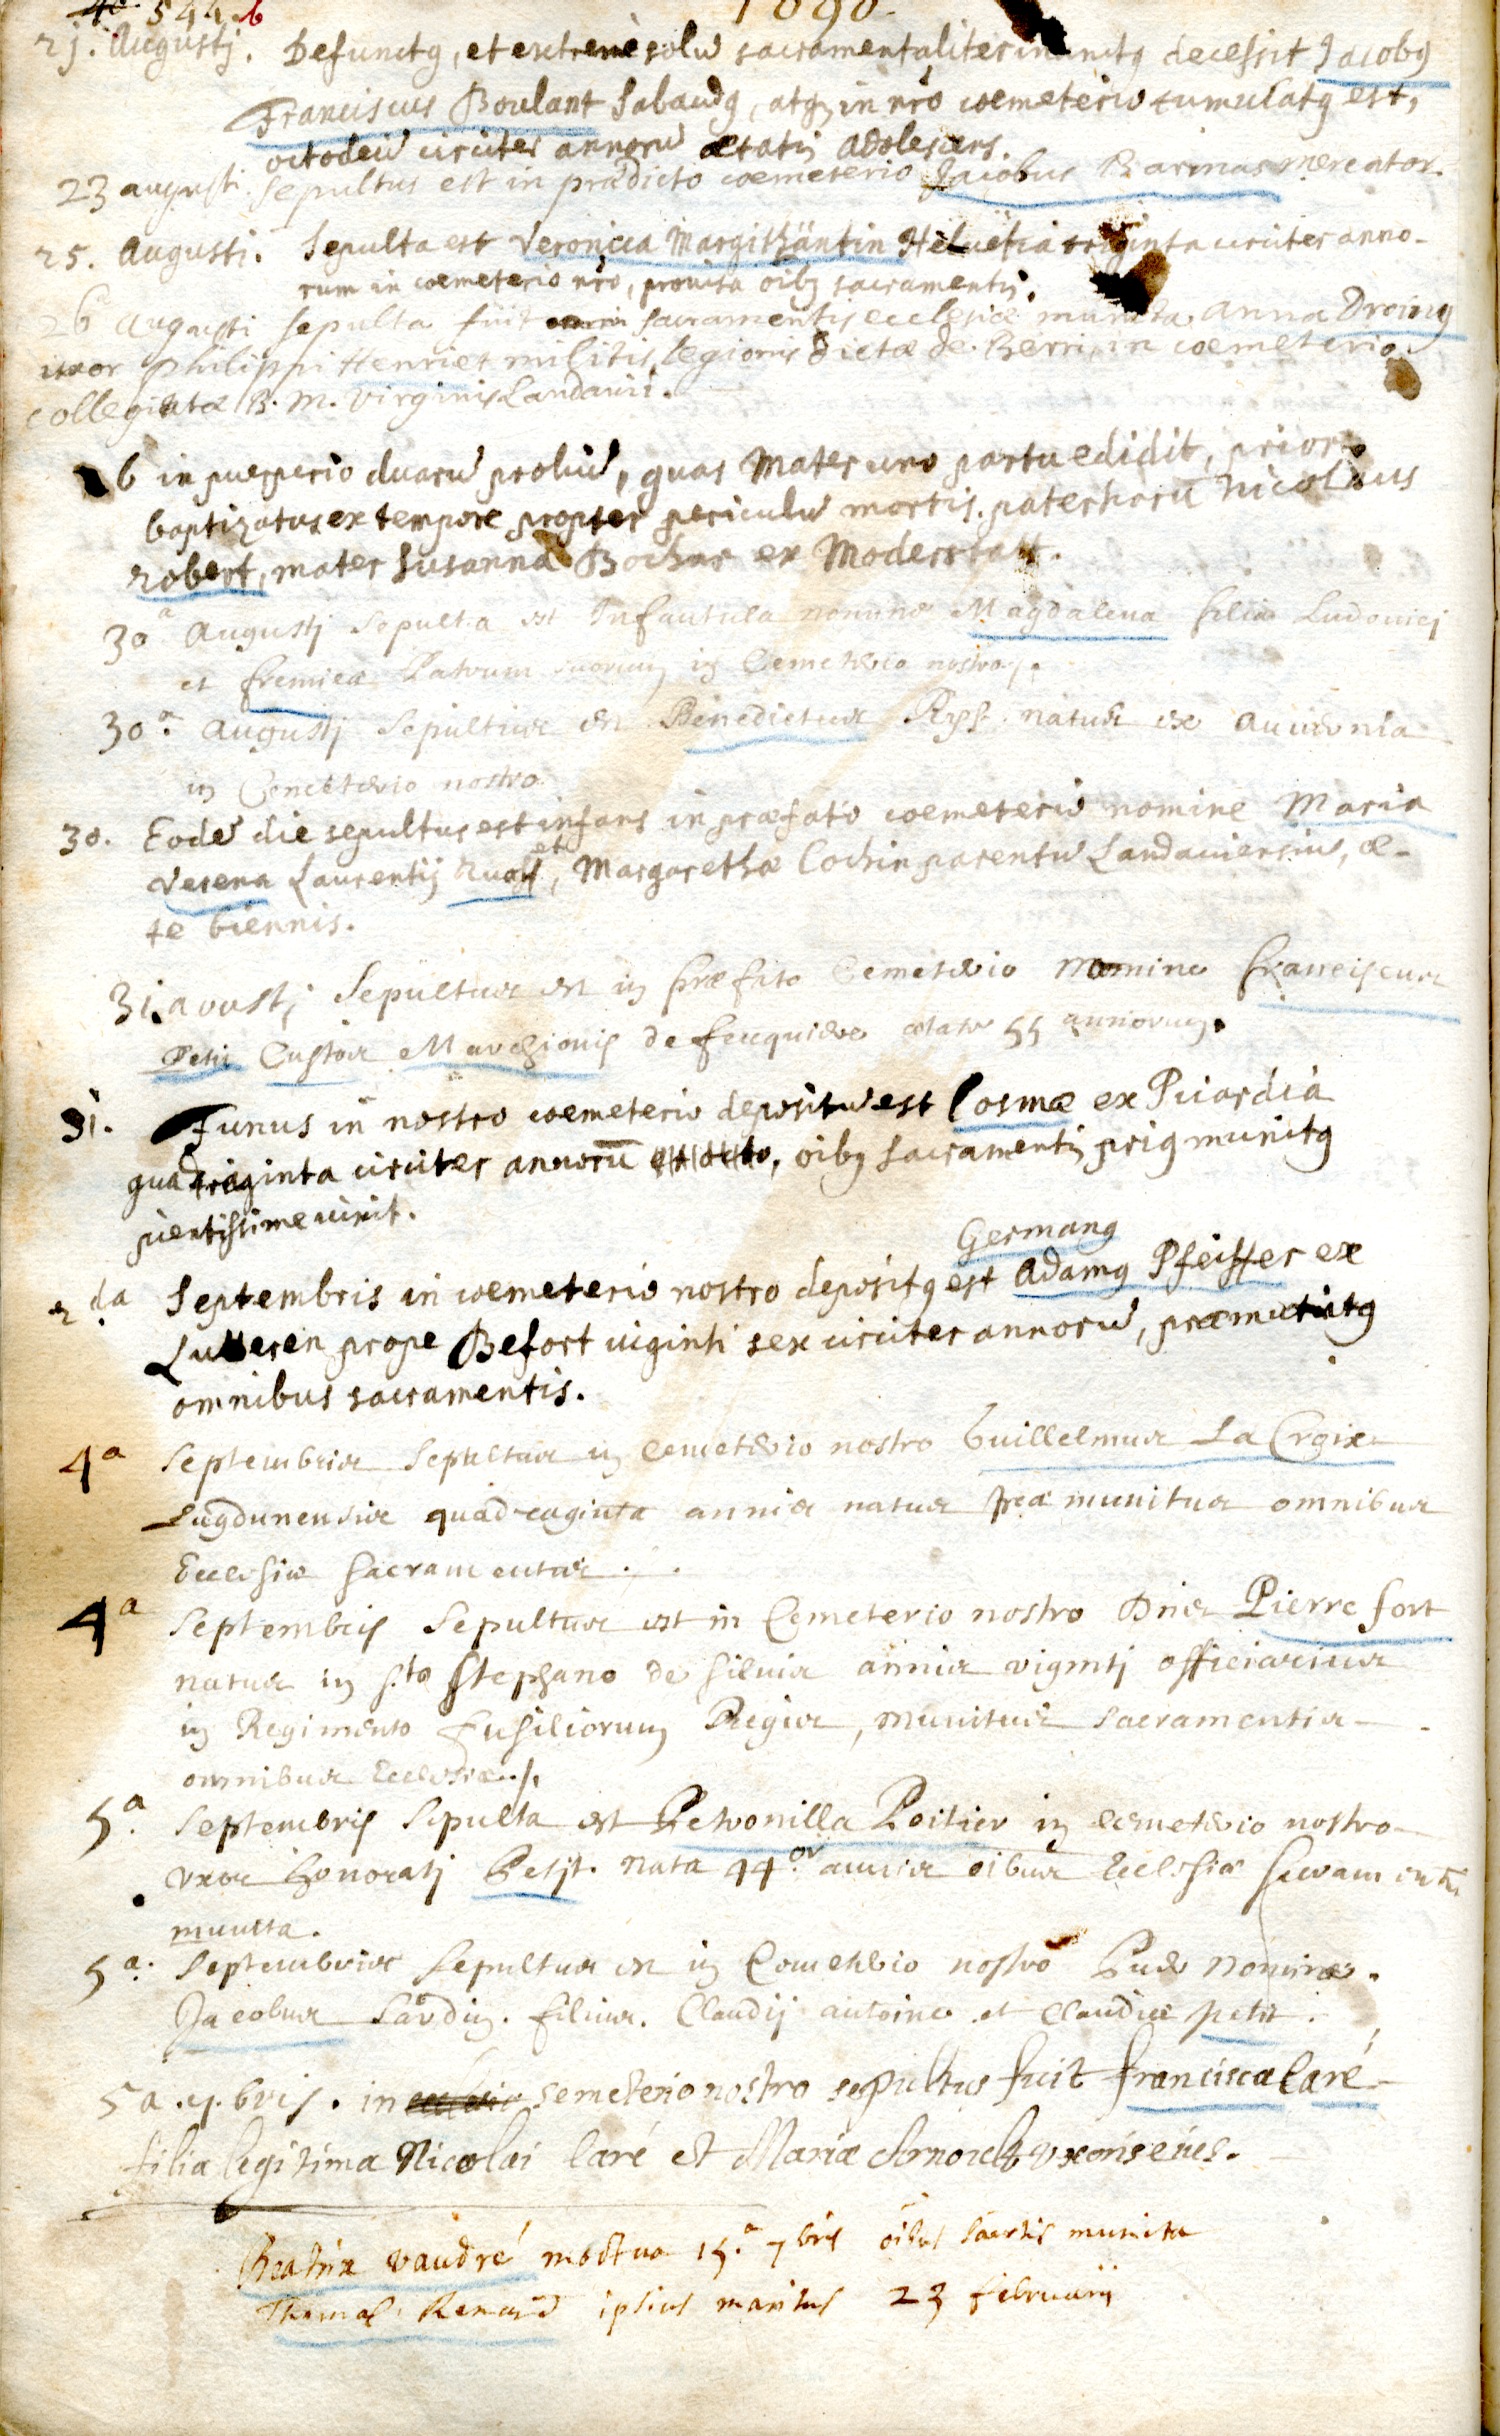 544.b
1690.
21. Augustj. Defunctꝯ, et extreme solū sacramentaliter inunctꝯ decessit Jacobꝯ
Franciscus Boulant Sabaudꝯ, atqꝫ in nrō coemeterio tumulatꝯ est,
octodeci͂ circiter annorū ætatis adolescens.
23 augusti sepultus est in prædicto coemeterio Jacobus Barmas mercator.
25. Augusti. Sepulta est Veronica Margithäntin Helvetia triginta circiter anno-
rum in coemeterio nrō, provisa oibꝫ sacramentis.
26 augusti sepulta fuit sacramentis ecclesiæ munita anna Droing
uxor philippi Henriet militis legionis dictæ de Berri, in coemeterio
collegiatæ B. M. Virginis Landavii.
6 in puerperio duarū proliū, quas Mater uno partu edidit, prior
baptizatus ex tempore propter periculū mortis. pater harū Nicolaus
Robert, mater Susanna Bochar ex Moderstatt.
30a Augustj Sepulta est Infantula nomine Magdalena filia Ludovicj
et fremiea Patrum suorum in Cemeterio nostro.
30a. Augustj Sepultus est Benedictus natus ex auvernia
in Cemeterio nostro
30. Eodē die sepultus est infans in præfato coemeterio nomine Maria
Verena Laurentij Ruoff et, Margarethæ Cochin parentū Landaviensiū, æ-
te biennis.
31. avustj Sepultus est in præfato Cemeterio Nomine franciscus
Petit Custos Marchionis de feuquiere ætate 55 annorum.
31. Funus in nostro coemeterio depositū est Cosmæ ex Picardia
quadriginta circiter annorū, oibꝫ sacramentis priꝯ munitꝯ
pientissime vixit.
Germanꝯ
2da. Septembris in coemeterio nostro depositꝯ est Adamꝯ Pfeiffer ex
Lutteren prope Befort viginti sex circiter annorū, præmunitꝯ
omnibus sacramentis.
4a Septembris Sepultus in Cemeterio nostro Guillelmus La Croix
Lugdunensis quadraginta annis natus præmunitus omnibus
Ecclesiæ Sacramentis.
4a Septembris Sepultus est in Cemeterio nostro Dnus Pierre fort
natus in s.to Stephano de silvis annis vigintj officiarius
in Regimento fusiliorum Regis, munitus sacramentis
omnibus Ecclesiæ./.
5a. Septembris Sepulta est Petronilla Poitier in cemeterio nostro
Vxor honoratj Petit. nata 44or. annis oibus Ecclesiæ sacramentis
munita.
5a. Septembris Sepultus est in Cemeterio nostro Puer nomine.
Jacobus Sardin. filius. Claudij antoine et Claudiæ petit.
5a. 7.bris. in semeterio nostro sepultus fuit francisca Caré
filia legitima Nicolai Caré et Mariæ Arnoult vxoris eius.
Beatrix vaudré mortua 15.a 7bris oibus sacrtis munita
Thomas Renard ipsius maritus 23 februarii